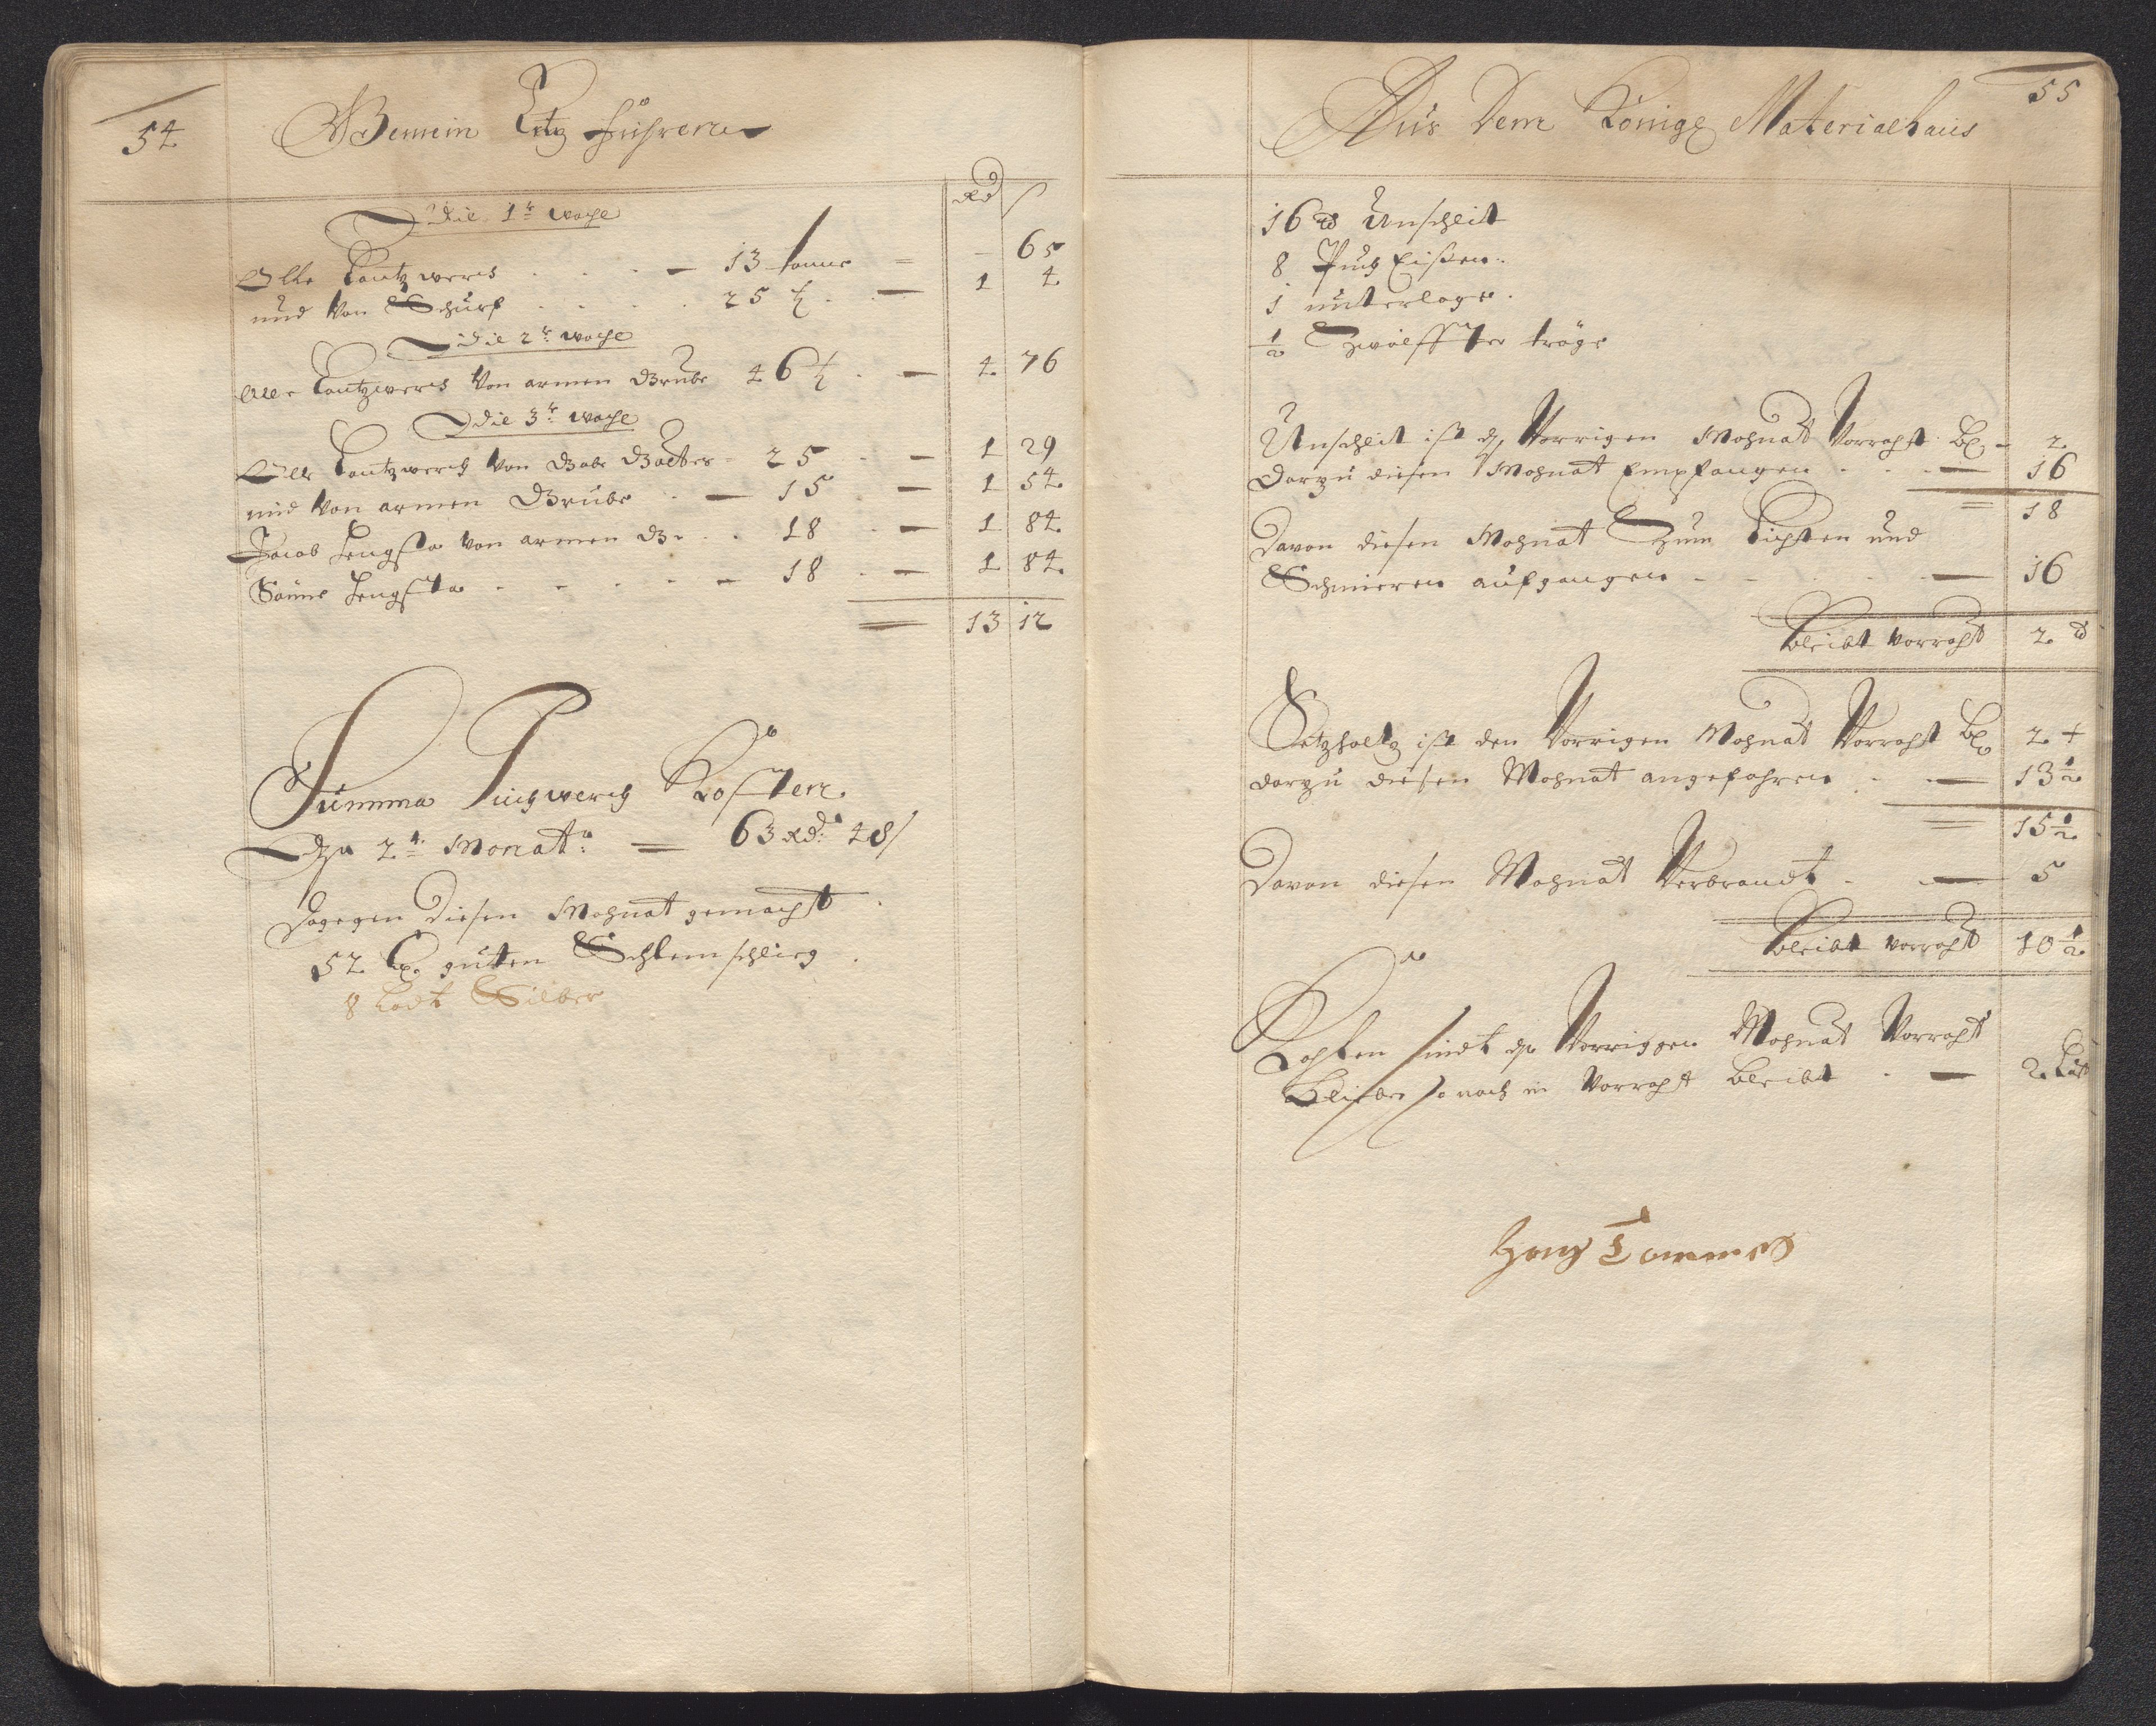 54
Gemein Ertz fuhren
Rd ß
Die 1te woche
Olle Lantzwerck 13 tonne = - 65
und Von Schürf 25 ½ - 1 4
Die 2te woche
Olle Lantzwerck Von armen Grube 46 ½ - 4 76
Die 3te woche
Olle Lantzwerck Von Gabe Gottes - 25 - 1 29
und Von armen Grube - 15 - 1 54
Jacob Lengsta von armen G: 18 - 1 84
Lengsta - 18 - 1 84
= 13 12
Summa Puchwerch Kosten
2te Monat: = 63 Rd: 48 ß
dagegen diesen Mohnat gemacht
52 guten Schlemschlieg
8 Lodt Silber
55
Aus Dem Königl Materialhaus
16 ℔ Unschleit
8 Puch Eißen
1 unterlage
½ Zwölffter tröge
Unschleit ist den Vorrigen Mohnat Vorraht Bl - 2
darzu diesen Mohnat Empfangen - 16
= 18
Davon diesen Mohnat Zum Lichten und
Schmieren aufgangen - 16
bleibt vorraht 2 ℔
Setzholtz ist den Vorrigen Mohnat Vorraht Bl 2 +
darzu diesen Mohnat angefahren - 13½
= 15½
Davon diesen Mohnat Verbrandt - 5
bleibt vorraht 10½
Kohlen sindt den Vorriggen Mohnat Vorraht
Blieben so noch in Vorraht bleibt - 2 Last
Hans